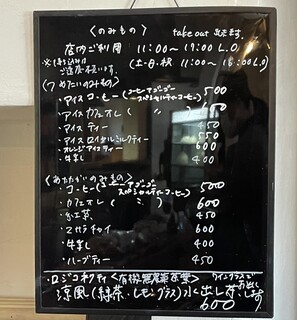 〈のみもの〉 take out 出来ます。
店内ご利用 11:00～17:00 L.O
(土・日・祝 11:00～16:00 L.O)
※持ち込みは
ご遠慮願います。
〈つめたいのみもの〉
・アイスコーヒー(コーヒーアゴーゴー 500
スペシャルティーコーヒー)
・アイスカフェオレ( 〃 )
・アイスティー 450
・アイスロイヤルミルクティー 550
・オレンジアイスティー 600
・牛乳 400
〈あたたかいのみもの〉
・コーヒー(コーヒーアゴーゴー 500
スペシャルティーコーヒー)
・カフェオレ( 〃 ) 600
・紅茶 450
・マサラチャイ 600
・牛乳 400
・ハーブティー 450
・ロジコネクティ〈有機無農薬茶葉〉 ワイングラスで
お出し
します。
涼風(緑茶・レモングラス)水出し茶
600